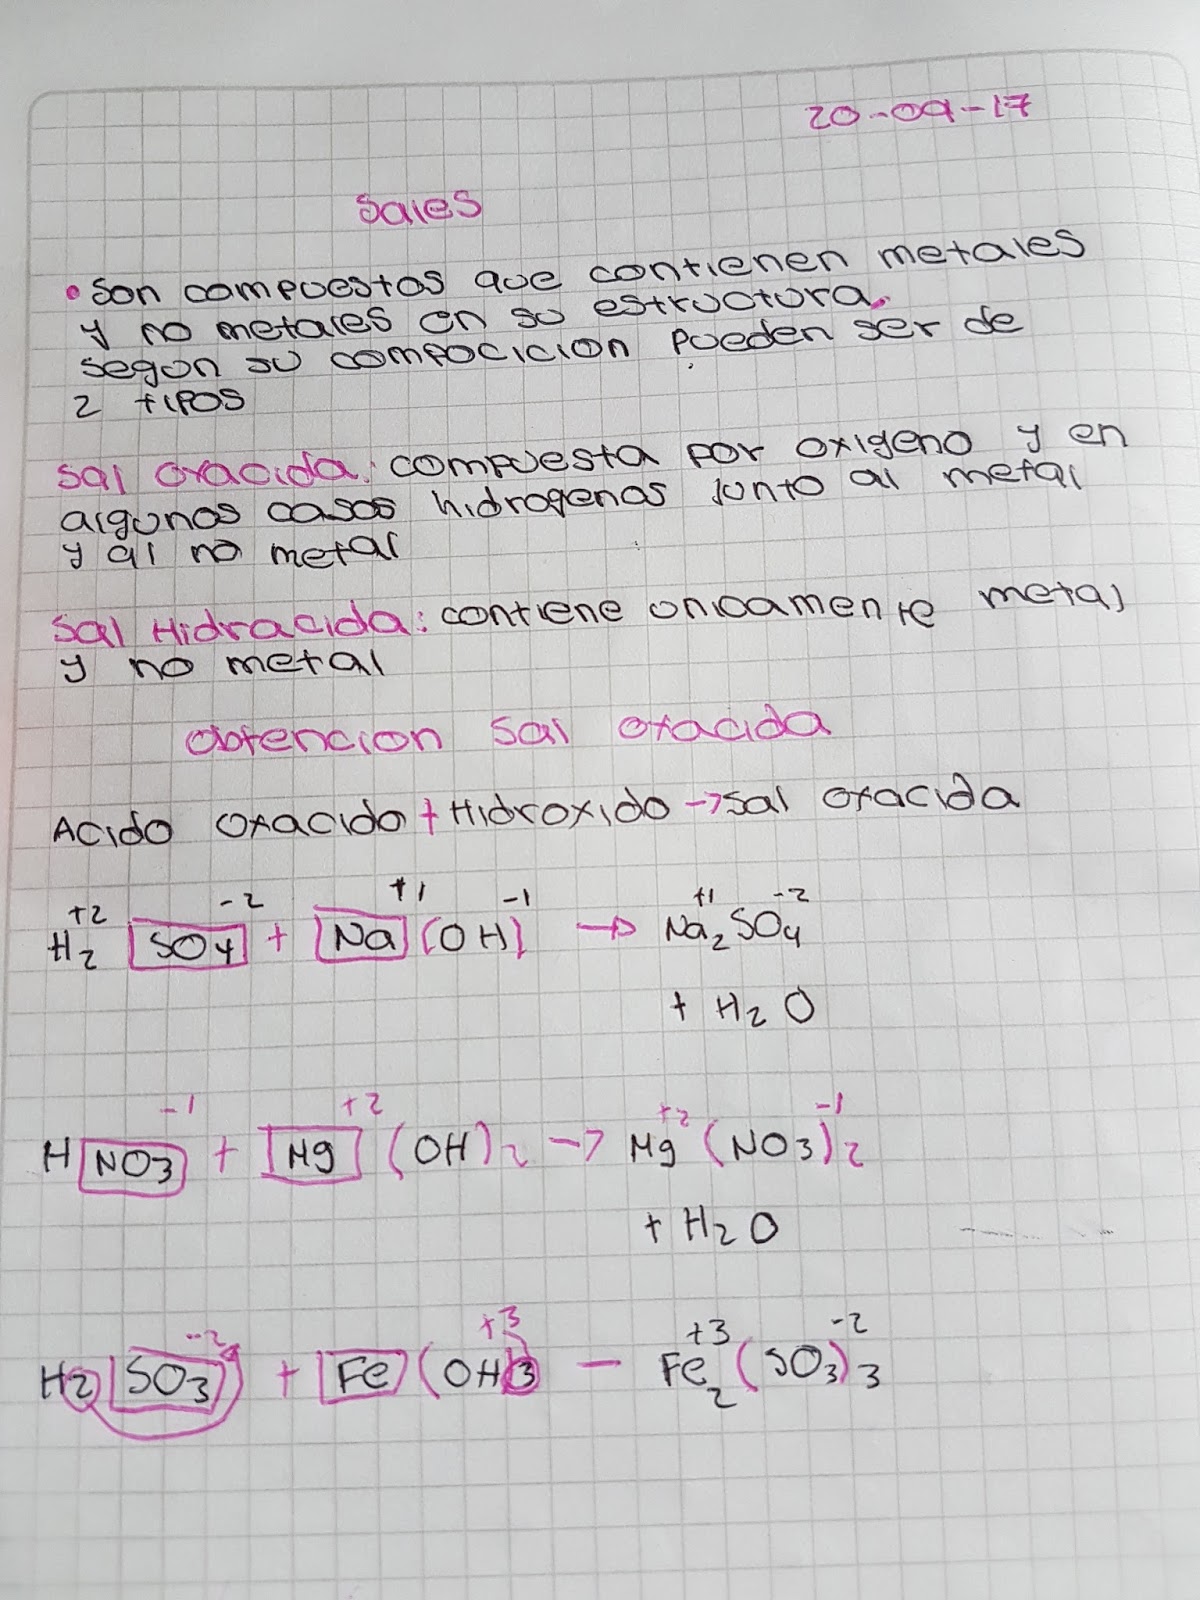 20-09-17
Sales
• Son compuestos que contienen metales
y no metales en su estructura.
segun su compocicion pueden ser de
2 tipos
Sal oxacida: compuesta por oxigeno y en
algunos casos hidrogenos junto al metal
y al no metal
Sal Hidracida: contiene unicamente metal
y no metal
obtencion sal oxacida
Acido oxacido + Hidroxido → sal oxacida
+2 -2 +1 -1 +1 -2
H2 SO4 + Na (OH) → Na2SO4
+ H2O
-1 +2 +2 -1
H NO3 + Mg (OH)2 → Mg (NO3)2
+ H2O
-2 +3 +3 -2
H2 SO3 + Fe (OH)3 — Fe2 (SO3)3